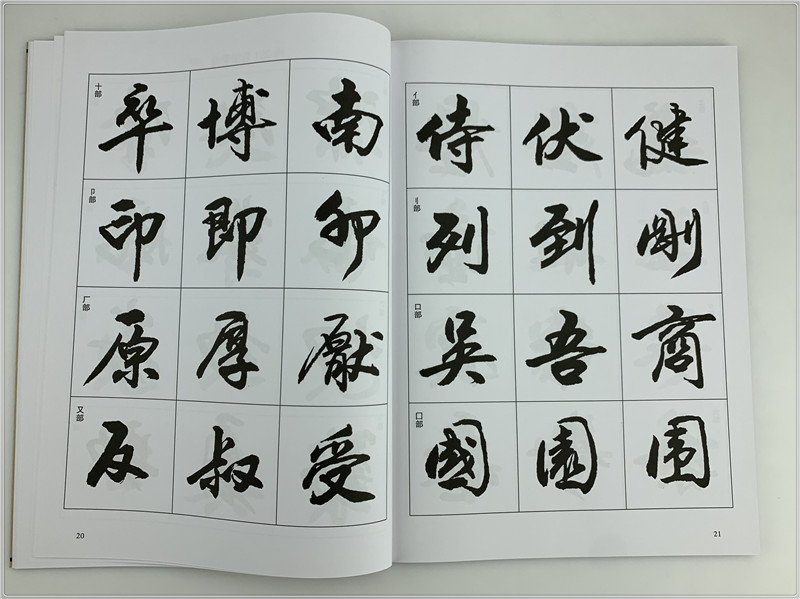 十部 卒 博 南
卩部 印 即 卯
厂部 原 厚 厭
又部 反 叔 受
20
亻部 侍 伏 健
刂部 列 到 剛
口部 吳 吾 商
囗部 國 園 围
21